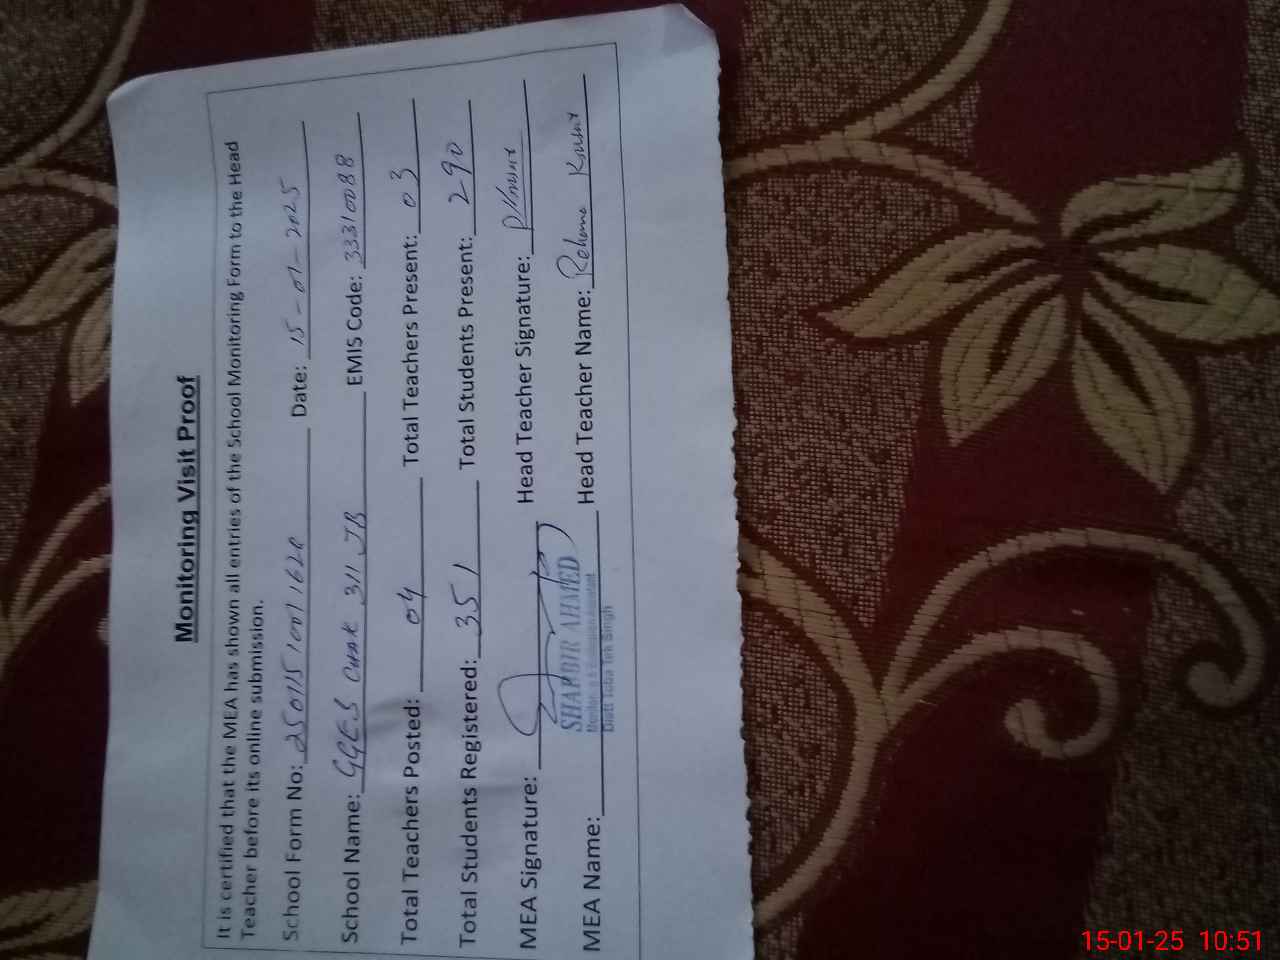 Monitoring Visit Proof
It is certified that the MEA has shown all entries of the School Monitoring Form to the Head
Teacher before its online submission.
School Form No: 25011510011628 Date: 15-01-2025
School Name: GGES Chak 311 JB EMIS Code: 33310088
Total Teachers Posted: 04 Total Teachers Present: 03
Total Students Registered: 351 Total Students Present: 290
MEA Signature: Head Teacher Signature:
MEA Name: Head Teacher Name: Rehana Kousar
SHABBIR AHMED
Monitoring & Evaluation Assistant
Distt Toba Tek Singh
15-01-25 10:51